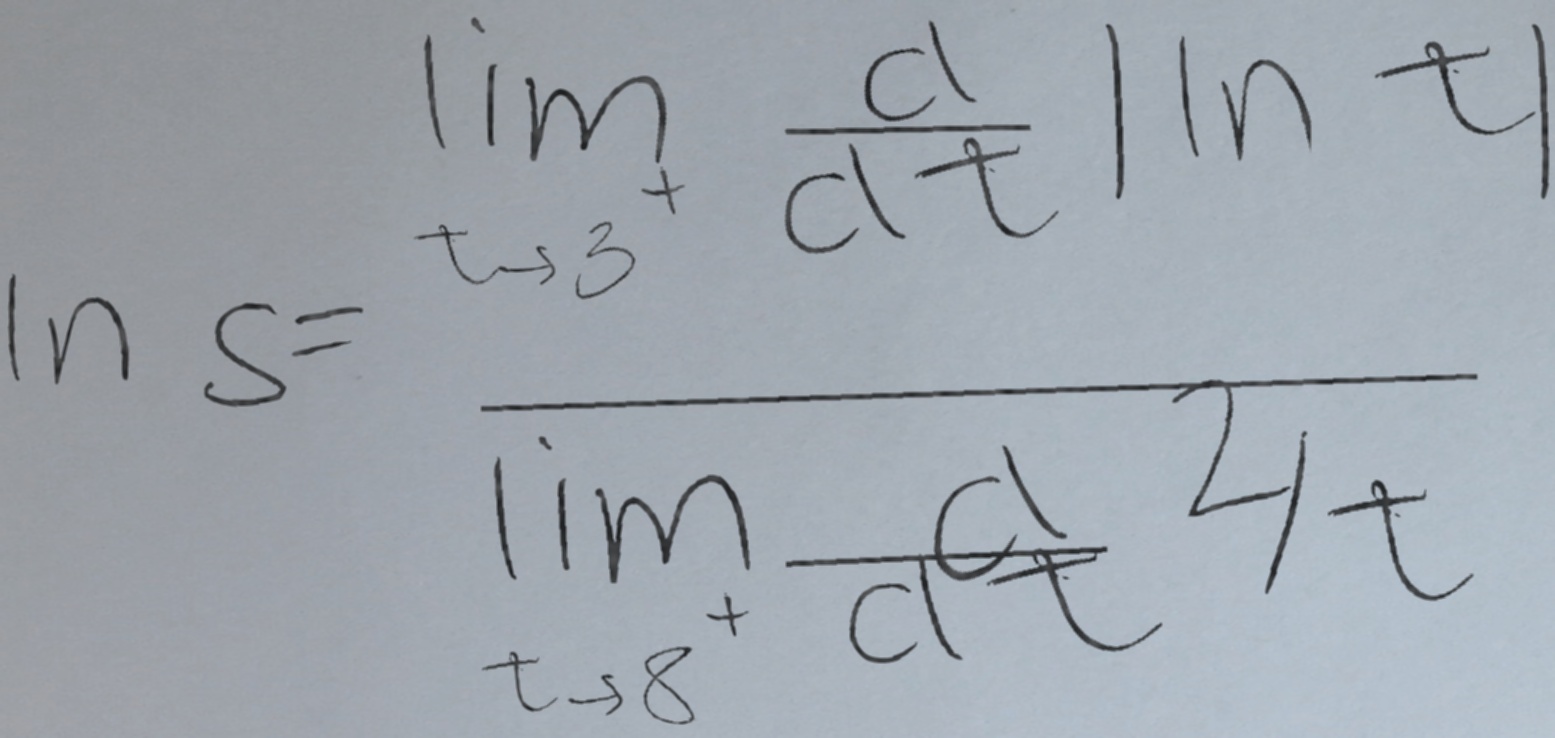 ln s = \frac{\lim_{t \to 3^+} \frac{d}{dt} |ln t|}{\lim_{t \to 8^+} \frac{d}{dt} 2/t}